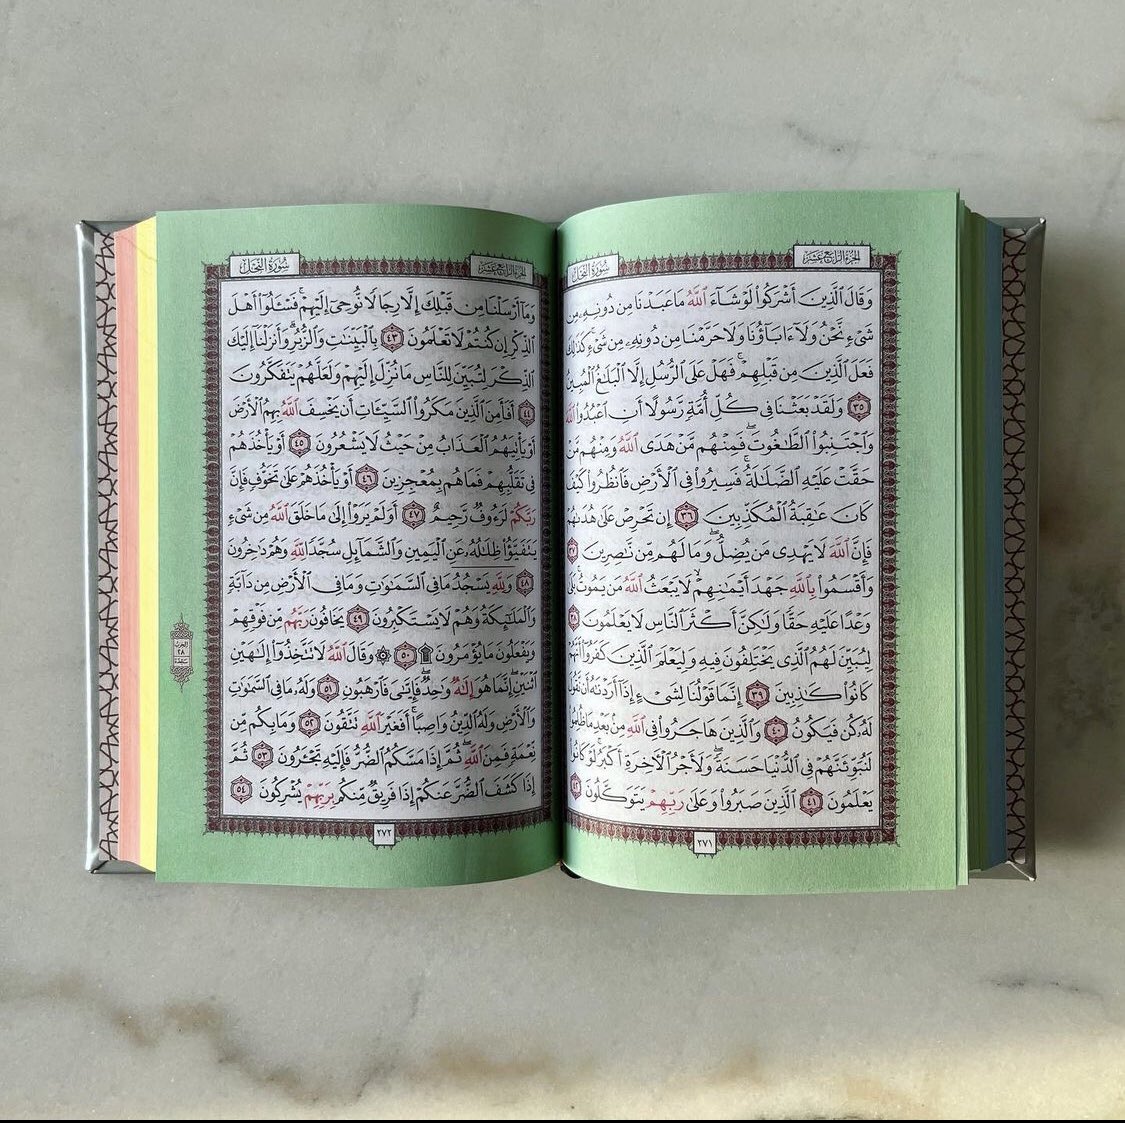 الجزء الرابع عشر
سورة النحل
وَقَالَ ٱلَّذِينَ أَشْرَكُوا۟ لَوْ شَآءَ ٱللَّهُ مَا عَبَدْنَا مِن دُونِهِۦ مِن
شَىْءٍ نَّحْنُ وَلَآ ءَابَآؤُنَا وَلَا حَرَّمْنَا مِن دُونِهِۦ مِن شَىْءٍ كَذَٰلِكَ
فَعَلَ ٱلَّذِينَ مِن قَبْلِهِمْ فَهَلْ عَلَى ٱلرُّسُلِ إِلَّا ٱلْبَلَٰغُ ٱلْمُبِينُ
٣٥ وَلَقَدْ بَعَثْنَا فِى كُلِّ أُمَّةٍ رَّسُولًا أَنِ ٱعْبُدُوا۟ ٱللَّهَ
وَٱجْتَنِبُوا۟ ٱلطَّٰغُوتَ فَمِنْهُم مَّنْ هَدَى ٱللَّهُ وَمِنْهُم مَّنْ
حَقَّتْ عَلَيْهِ ٱلضَّلَٰلَةُ فَسِيرُوا۟ فِى ٱلْأَرْضِ فَٱنظُرُوا۟ كَيْفَ
كَانَ عَٰقِبَةُ ٱلْمُكَذِّبِينَ ٣٦ إِن تَحْرِصْ عَلَىٰ هُدَىٰهُمْ
فَإِنَّ ٱللَّهَ لَا يَهْدِى مَن يُضِلُّ وَمَا لَهُم مِّن نَّٰصِرِينَ ٣٧
وَأَقْسَمُوا۟ بِٱللَّهِ جَهْدَ أَيْمَٰنِهِمْ لَا يَبْعَثُ ٱللَّهُ مَن يَمُوتُ بَلَىٰ
وَعْدًا عَلَيْهِ حَقًّا وَلَٰكِنَّ أَكْثَرَ ٱلنَّاسِ لَا يَعْلَمُونَ ٣٨
لِيُبَيِّنَ لَهُمُ ٱلَّذِى يَخْتَلِفُونَ فِيهِ وَلِيَعْلَمَ ٱلَّذِينَ كَفَرُوٓا۟ أَنَّهُمْ
كَانُوا۟ كَٰذِبِينَ ٣٩ إِنَّمَا قَوْلُنَا لِشَىْءٍ إِذَآ أَرَدْنَٰهُ أَن نَّقُولَ
لَهُۥ كُن فَيَكُونُ ٤٠ وَٱلَّذِينَ هَاجَرُوا۟ فِى ٱللَّهِ مِنۢ بَعْدِ مَا ظُلِمُوا۟
لَنُبَوِّئَنَّهُمْ فِى ٱلدُّنْيَا حَسَنَةً وَلَأَجْرُ ٱلْءَاخِرَةِ أَكْبَرُ لَوْ كَانُوا۟
يَعْلَمُونَ ٤١ ٱلَّذِينَ صَبَرُوا۟ وَعَلَىٰ رَبِّهِمْ يَتَوَكَّلُونَ ٤٢
٢٧١
الجزء الرابع عشر
سورة النحل
وَمَآ أَرْسَلْنَا مِن قَبْلِكَ إِلَّا رِجَالًا نُّوحِىٓ إِلَيْهِمْ فَسْـَٔلُوٓا۟ أَهْلَ
ٱلذِّكْرِ إِن كُنتُمْ لَا تَعْلَمُونَ ٤٣ بِٱلْبَيِّنَٰتِ وَٱلزُّبُرِ وَأَنزَلْنَآ إِلَيْكَ
ٱلذِّكْرَ لِتُبَيِّنَ لِلنَّاسِ مَا نُزِّلَ إِلَيْهِمْ وَلَعَلَّهُمْ يَتَفَكَّرُونَ
٤٤ أَفَأَمِنَ ٱلَّذِينَ مَكَرُوا۟ ٱلسَّيِّـَٔاتِ أَن يَخْسِفَ ٱللَّهُ بِهِمُ ٱلْأَرْضَ
أَوْ يَأْتِيَهُمُ ٱلْعَذَابُ مِنْ حَيْثُ لَا يَشْعُرُونَ ٤٥ أَوْ يَأْخُذَهُمْ
فِى تَقَلُّبِهِمْ فَمَا هُم بِمُعْجِزِينَ ٤٦ أَوْ يَأْخُذَهُمْ عَلَىٰ تَخَوُّفٍ فَإِنَّ
رَبَّكُمْ لَرَءُوفٌ رَّحِيمٌ ٤٧ أَوَلَمْ يَرَوْا۟ إِلَىٰ مَا خَلَقَ ٱللَّهُ مِن شَىْءٍ
يَتَفَيَّؤُا۟ ظِلَٰلُهُۥ عَنِ ٱلْيَمِينِ وَٱلشَّمَآئِلِ سُجَّدًا لِّلَّهِ وَهُمْ دَٰخِرُونَ
٤٨ وَلِلَّهِ يَسْجُدُ مَا فِى ٱلسَّمَٰوَٰتِ وَمَا فِى ٱلْأَرْضِ مِن دَآبَّةٍ
وَٱلْمَلَٰٓئِكَةُ وَهُمْ لَا يَسْتَكْبِرُونَ ٤٩ يَخَافُونَ رَبَّهُم مِّن فَوْقِهِمْ
وَيَفْعَلُونَ مَا يُؤْمَرُونَ ۩ ٥٠ ۞ وَقَالَ ٱللَّهُ لَا تَتَّخِذُوٓا۟ إِلَٰهَيْنِ
ٱثْنَيْنِ إِنَّمَا هُوَ إِلَٰهٌ وَٰحِدٌ فَإِيَّٰىَ فَٱرْهَبُونِ ٥١ وَلَهُۥ مَا فِى ٱلسَّمَٰوَٰتِ
وَٱلْأَرْضِ وَلَهُ ٱلدِّينُ وَاصِبًا أَفَغَيْرَ ٱللَّهِ تَتَّقُونَ ٥٢ وَمَا بِكُم مِّن
نِّعْمَةٍ فَمِنَ ٱللَّهِ ثُمَّ إِذَا مَسَّكُمُ ٱلضُّرُّ فَإِلَيْهِ تَجْـَٔرُونَ ٥٣ ثُمَّ
إِذَا كَشَفَ ٱلضُّرَّ عَنكُمْ إِذَا فَرِيقٌ مِّنكُم بِرَبِّهِمْ يُشْرِكُونَ ٥٤
٢٧٢
الحزب
٢٨